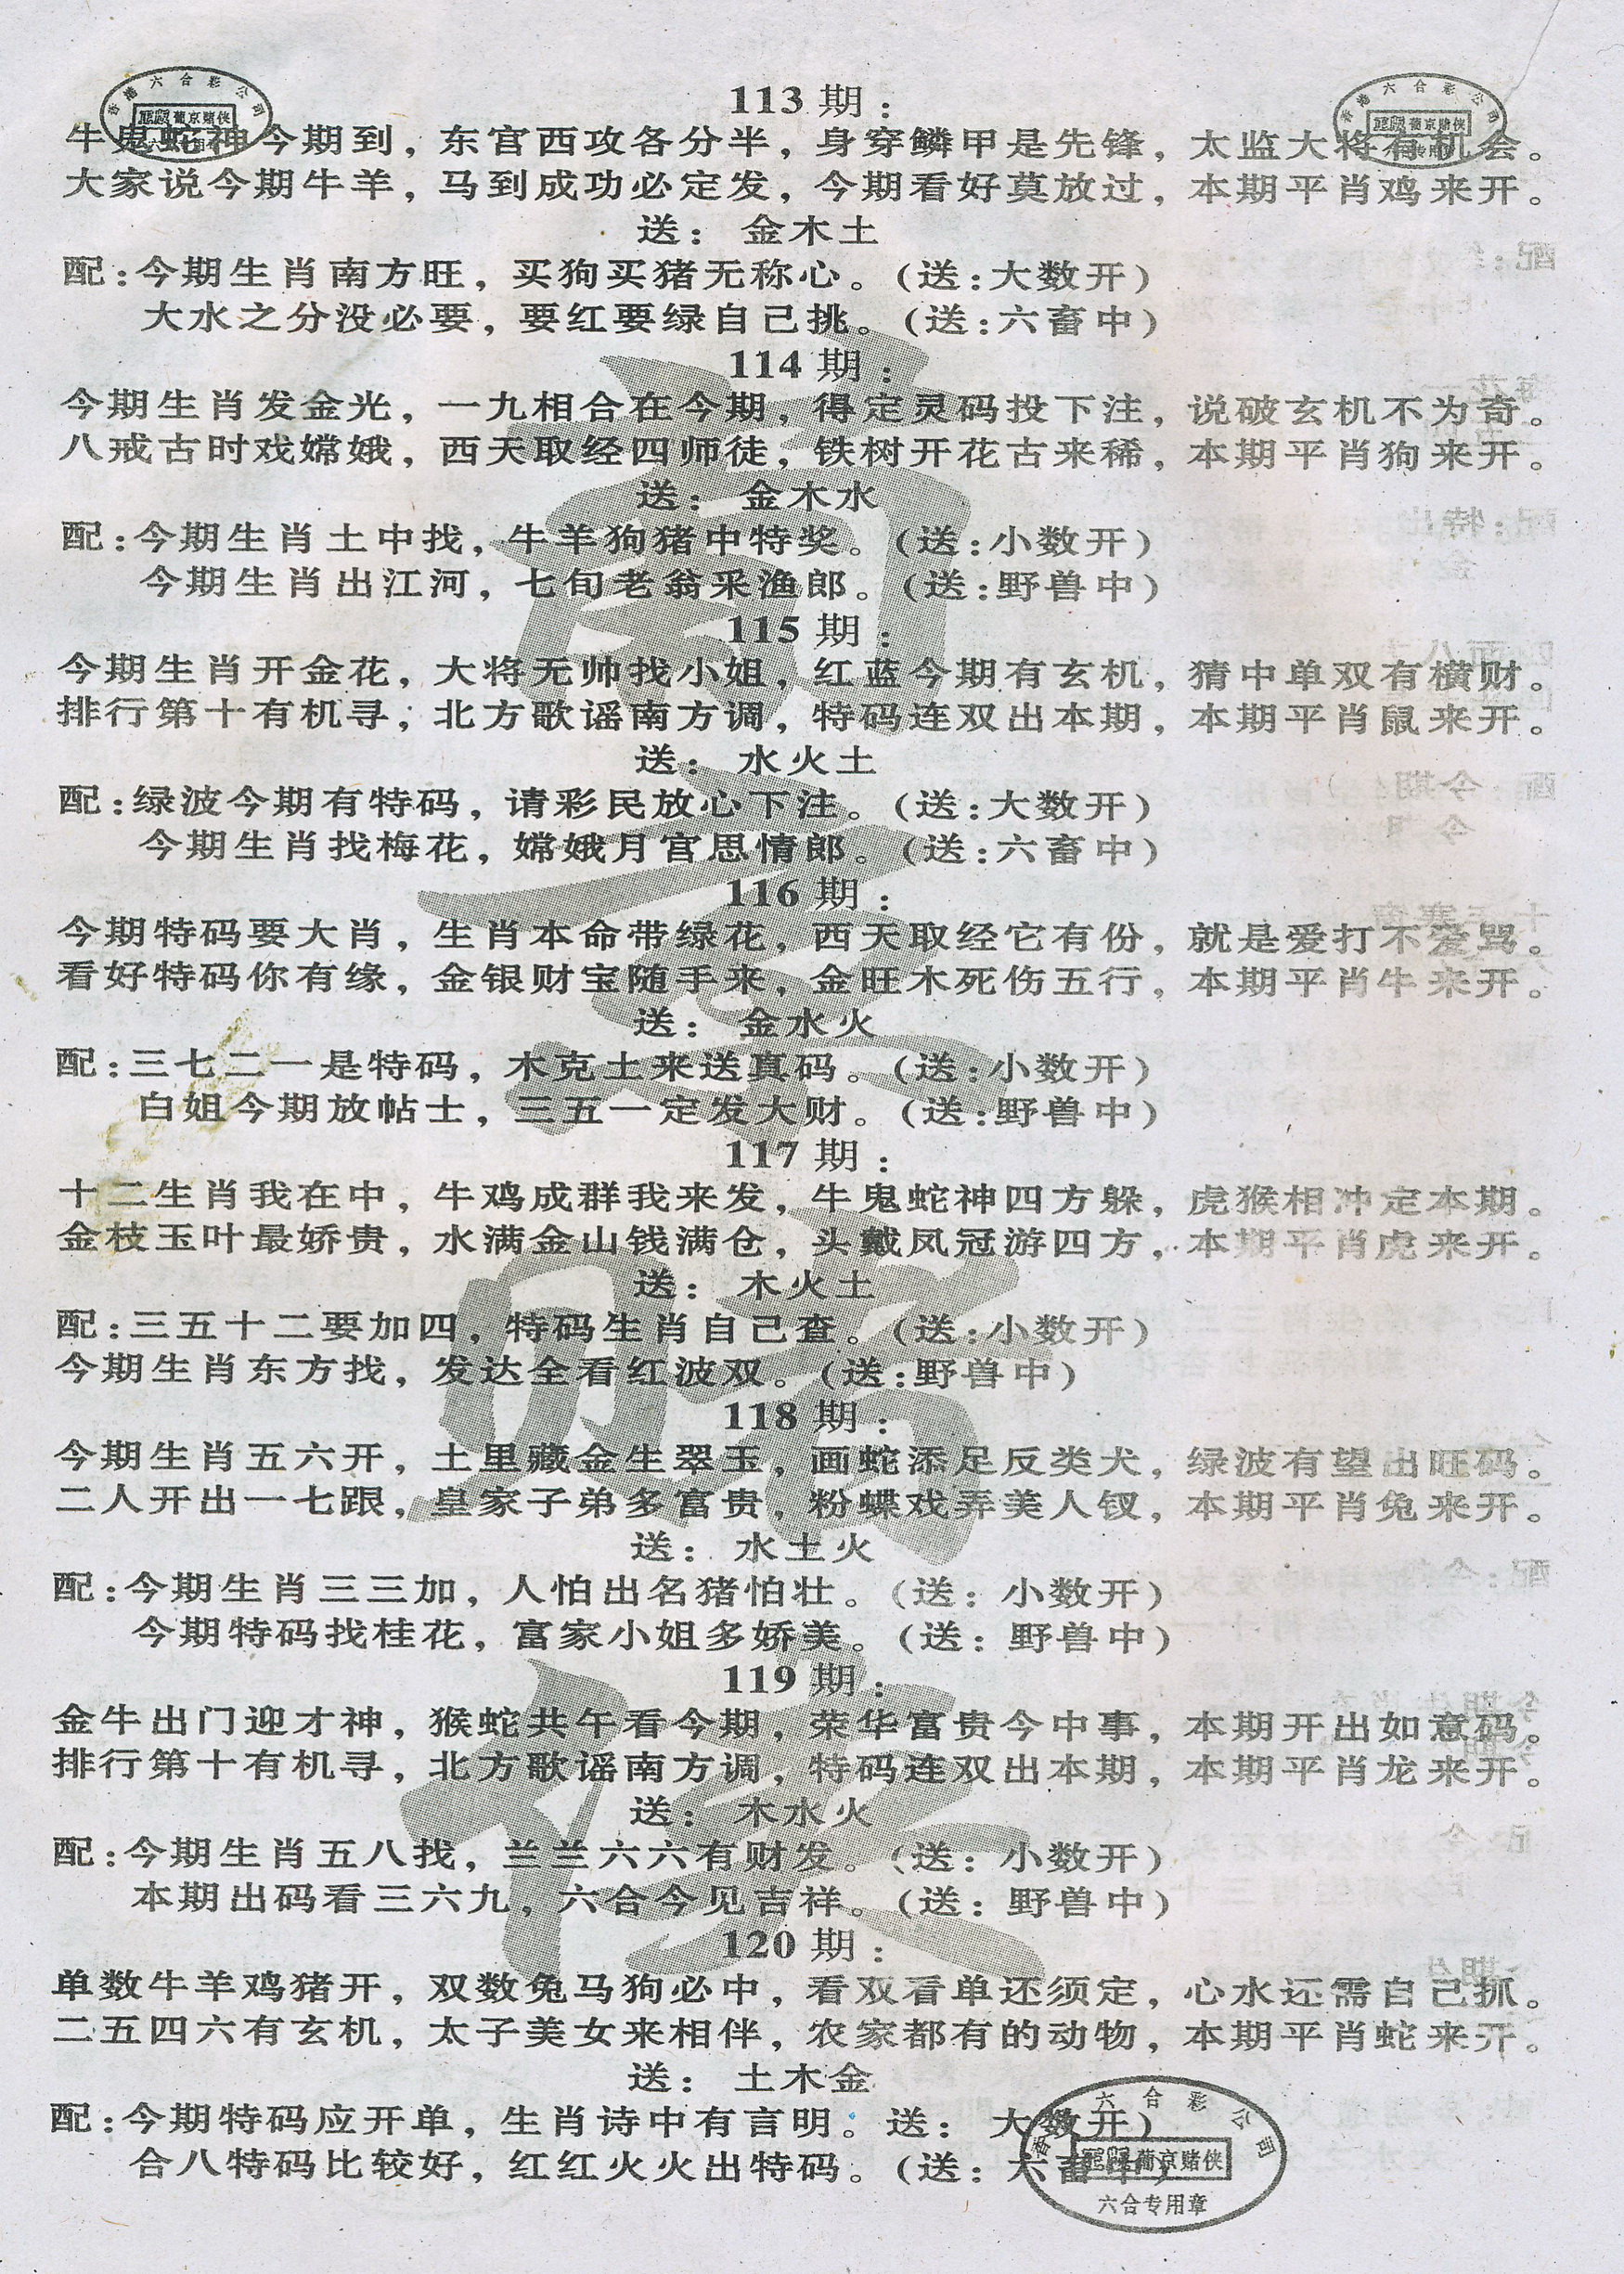 香港六合彩公司
葡京赌侠
香港六合彩公司
葡京赌侠
113期：
牛鬼蛇神今期到，东宫西攻各分半，身穿鳞甲是先锋，太监大将有机会。
大家说今期牛羊，马到成功必定发，今期看好莫放过，本期平肖鸡来开。
送：金木土
配：今期生肖南方旺，买狗买猪无称心。（送：大数开）
大水之分没必要，要红要绿自己挑。（送：六畜中）
114期：
今期生肖发金光，一九相合在今期，得定灵码投下注，说破玄机不为奇。
八戒古时戏嫦娥，西天取经四师徒，铁树开花古来稀，本期平肖狗来开。
送：金木水
配：今期生肖土中找，牛羊狗猪中特奖。（送：小数开）
今期生肖出江河，七旬老翁采渔郎。（送：野兽中）
115期：
今期生肖开金花，大将无帅找小姐，红蓝今期有玄机，猜中单双有横财。
排行第十有机寻，北方歌谣南方调，特码连双出本期，本期平肖鼠来开。
送：水火土
配：绿波今期有特码，请彩民放心下注。（送：大数开）
今期生肖找梅花，嫦娥月宫思情郎。（送：六畜中）
116期：
今期特码要大肖，生肖本命带绿花，西天取经它有份，就是爱打不爱骂。
看好特码你有缘，金银财宝随手来，金旺木死伤五行，本期平肖牛来开。
送：金水火
配：三七二一是特码，木克土来送真码。（送：小数开）
白姐今期放帖士，三五一定发大财。（送：野兽中）
117期：
十二生肖我在中，牛鸡成群我来发，牛鬼蛇神四方躲，虎猴相冲定本期。
金枝玉叶最娇贵，水满金山钱满仓，头戴凤冠游四方，本期平肖虎来开。
送：木火土
配：三五十二要加四，特码生肖自己查。（送：小数开）
今期生肖东方找，发达全看红波双。（送：野兽中）
118期：
今期生肖五六开，土里藏金生翠玉，画蛇添足反类犬，绿波有望出旺码。
二人开出一七跟，皇家子弟多富贵，粉蝶戏弄美人钗，本期平肖兔来开。
送：水土火
配：今期生肖三三加，人怕出名猪怕壮。（送：小数开）
今期特码找桂花，富家小姐多娇美。（送：野兽中）
119期：
金牛出门迎才神，猴蛇共午看今期，荣华富贵今中事，本期开出如意码。
排行第十有机寻，北方歌谣南方调，特码连双出本期，本期平肖龙来开。
送：木水火
配：今期生肖五八找，兰兰六六有财发。（送：小数开）
本期出码看三六九，六合今见吉祥。（送：野兽中）
120期：
单数牛羊鸡猪开，双数兔马狗必中，看双看单还须定，心水还需自己抓。
二五四六有玄机，太子美女来相伴，农家都有的动物，本期平肖蛇来开。
送：土木金
配：今期特码应开单，生肖诗中有言明。送：大数开）
合八特码比较好，红红火火出特码。（送：六畜中）
香港六合彩公司
葡京赌侠
六合专用章